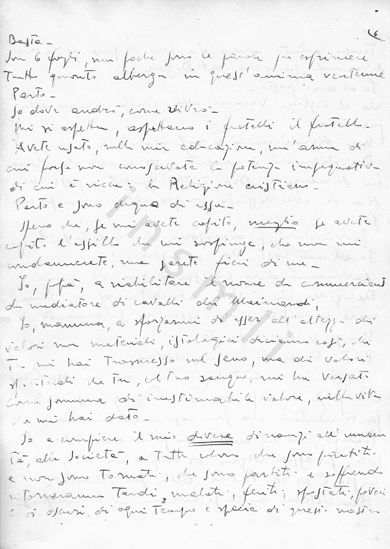 6
Basta –
Son 6 fogli, ma poche sono le parole per esprimere
tutto quanto alberga in quest'anima ventenne
Parto –
So dove andrò, come vivrò –
Mi si aspetta, aspettano i fratelli il fratello –
Avete usato, sulla mia educazione, un'arma di
cui forse non conoscevate la potenza
di cui è ricca: la Religione cristiana –
Parto e sono degno di essa –
Spero che, se mi avete capito, meglio se avete
capito l'assillo che mi sospinge, che non mi
ma sarete fieri di me –
Io, papà, a riabilitare il nome da commerciante
da mediatore di cavalli dei
Io, mamma, a sforzarmi di esser all'altezza dei
valori non materiali, istologici diciamo così, che
Tu mi hai trasmesso sul seno, ma dei valori
spirituali che tu, col tuo sangue, mi hai versato
come gemma di inestimabile valore, nella vita
che mi hai dato –
Io a compiere il mio dovere dinanzi all'umani
tà, alla società, a tutti coloro che sono partiti
e non sono tornati, che sono partiti e soffrendo
ritorneranno tardi, malati, feriti, spostati, poveri
eroi oscuri di ogni tempo e specie di questi nostri
insmli